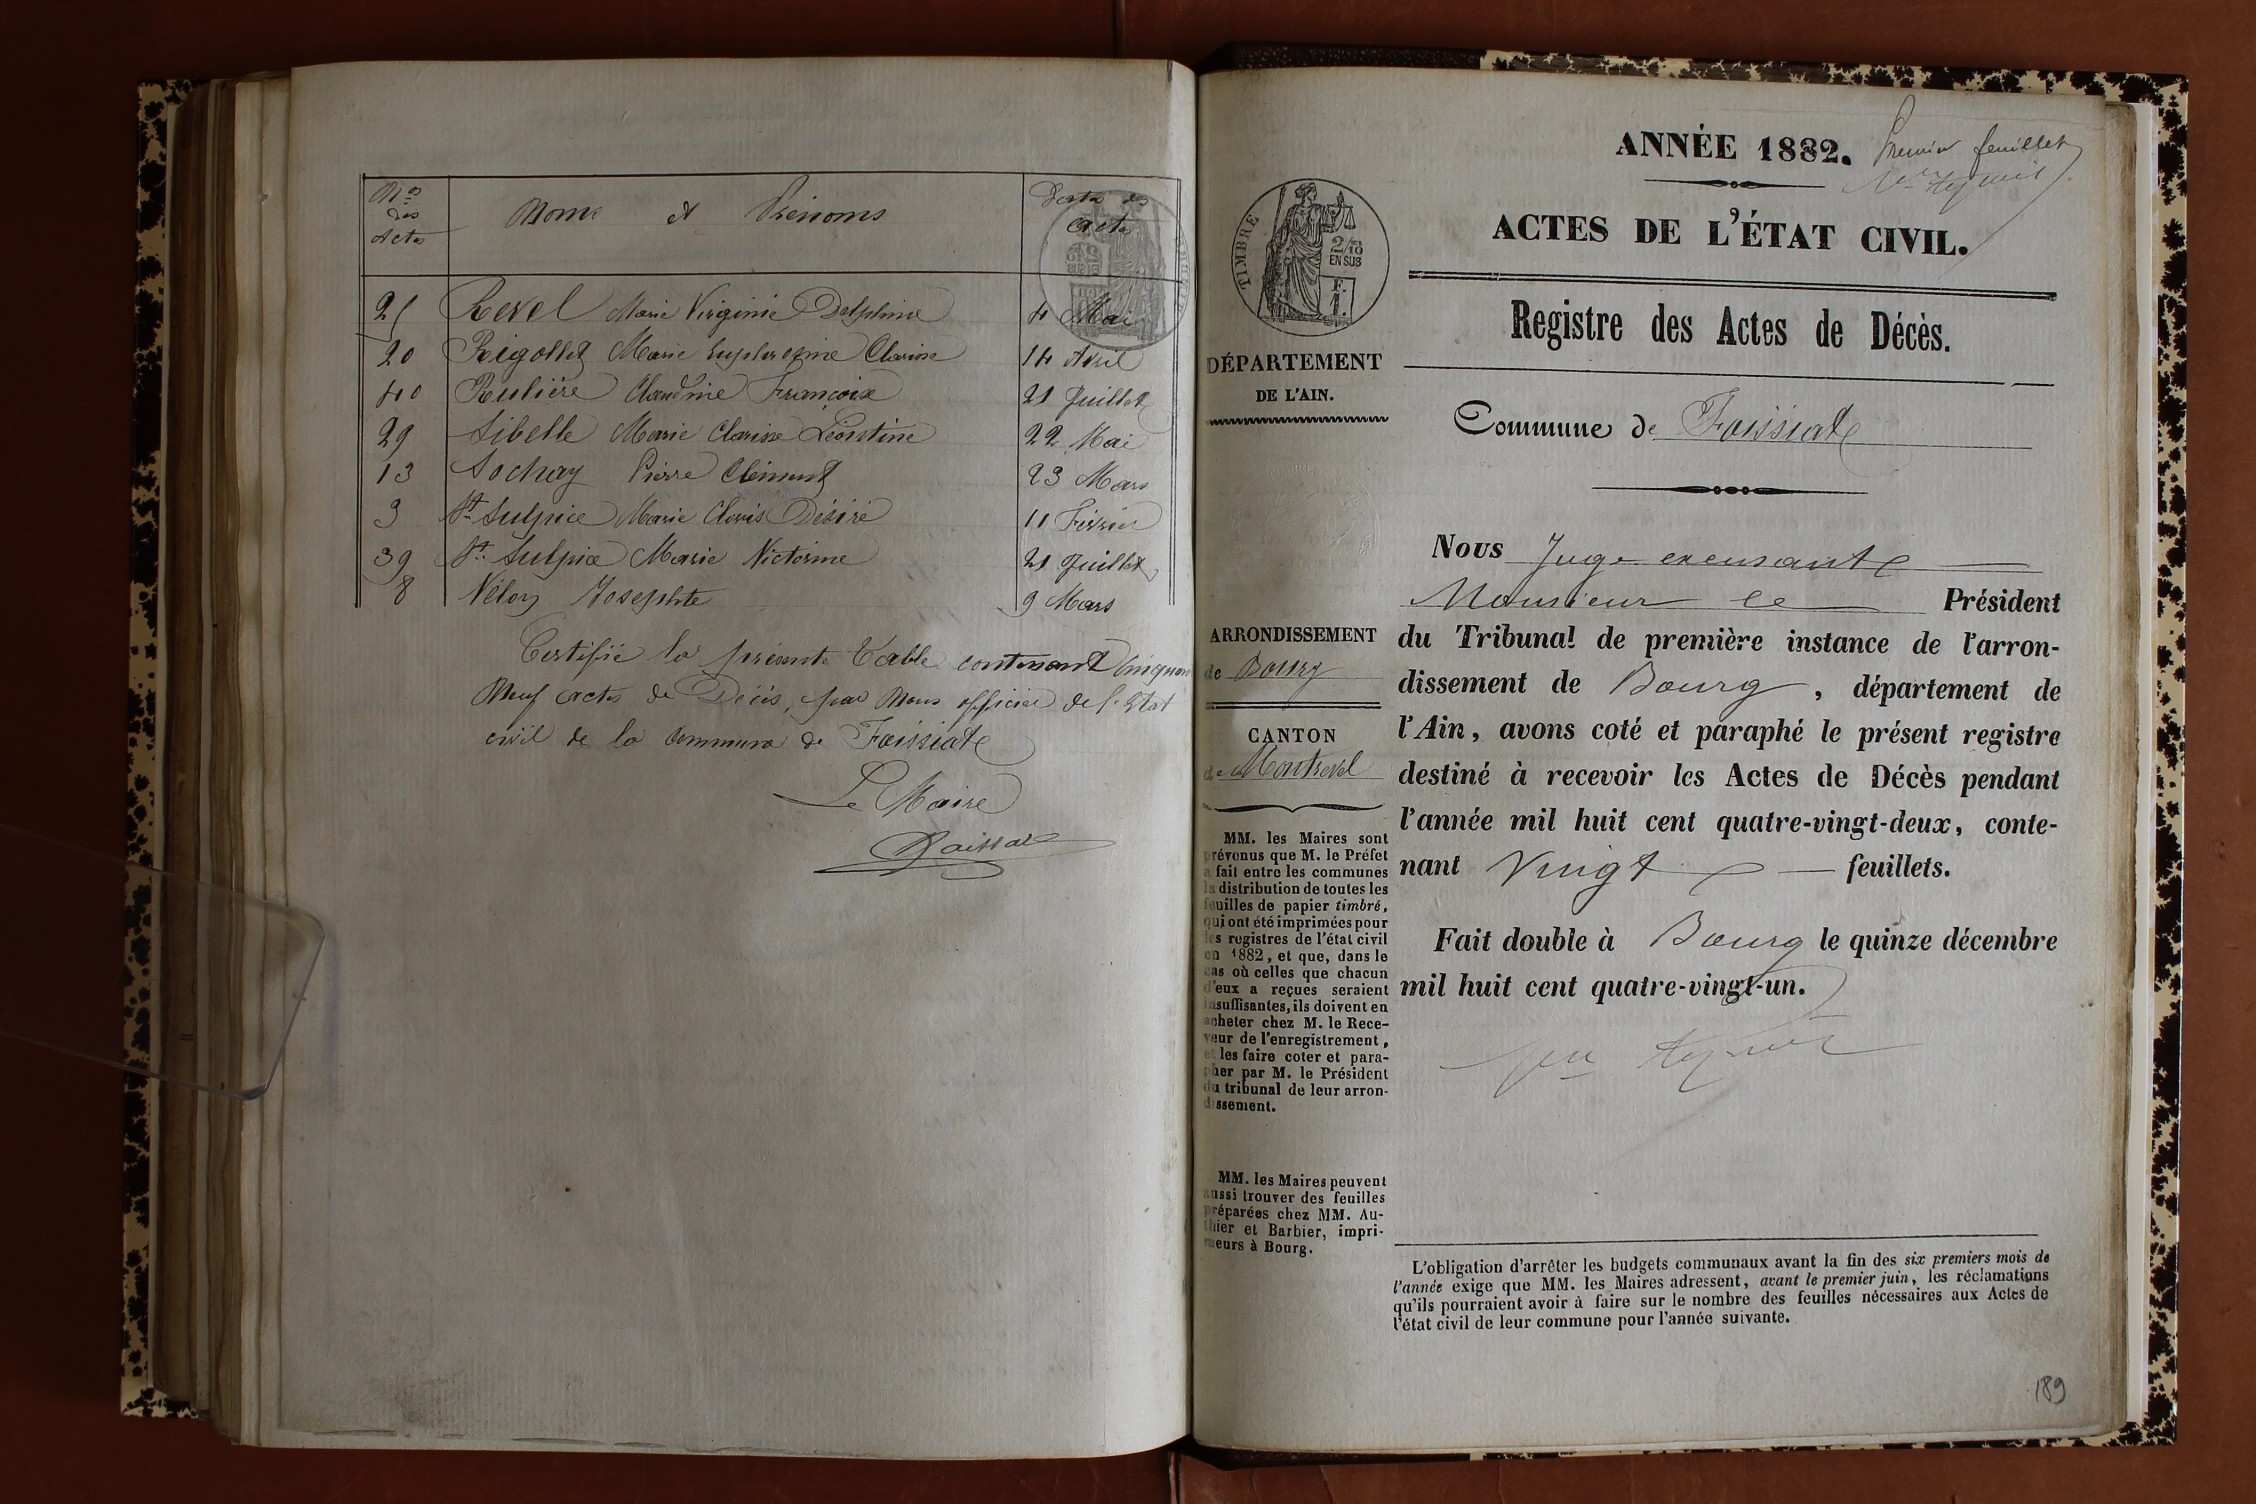 Nos des Actes
Noms et Prénoms
Date des Actes
21 Revel Marie Virginie Delphine 4 Mai
20 Rigollet Marie Euphrosine Clarisse 14 Avril
40 Rulière Claudine Françoise 21 Juillet
29 Sibelle Marie Clarisse Léontine 22 Mai
13 Sochay Pierre Clément 23 Mars
3 St Sulpice Marie Clovis Désiré 11 Février
39 St Sulpice Marie Victorine 21 Juillet
8 Vélon Josephte 9 Mars
Certifié la présente Table contenant Cinquante
Neuf actes de Décès, par Nous officier de l'Etat
civil de la commune de Foissiat
Le Maire
ANNÉE 1882.
Premier feuillet
ACTES DE L'ÉTAT CIVIL.
Registre des Actes de Décès.
TIMBRE
2/10
EN SUS
F.
1.
DÉPARTEMENT
DE L'AIN.
Commune de Foissiat
ARRONDISSEMENT
de Bourg
CANTON
de Montrevel
MM. les Maires sont
prévenus que M. le Préfet
a fait entre les communes
la distribution de toutes les
feuilles de papier timbré,
qui ont été imprimées pour
les registres de l'état civil
en 1882, et que, dans le
cas où celles que chacun
d'eux a reçues seraient
insuffisantes, ils doivent en
acheter chez M. le Rece-
veur de l'enregistrement,
et les faire coter et para-
pher par M. le Président
du tribunal de leur arron-
dissement.
MM. les Maires peuvent
aussi trouver des feuilles
préparées chez MM. Au-
thier et Barbier, impri-
meurs à Bourg.
Nous Juge
Monsieur le Président
du Tribunal de première instance de l'arron-
dissement de Bourg, département de
l'Ain, avons coté et paraphé le présent registre
destiné à recevoir les Actes de Décès pendant
l'année mil huit cent quatre-vingt-deux, conte-
nant Vingt feuillets.
Fait double à Bourg le quinze décembre
mil huit cent quatre-vingt-un.
L'obligation d'arrêter les budgets communaux avant la fin des six premiers mois de
l'année exige que MM. les Maires adressent, avant le premier juin, les réclamations
qu'ils pourraient avoir à faire sur le nombre des feuilles nécessaires aux Actes de
l'état civil de leur commune pour l'année suivante.
189